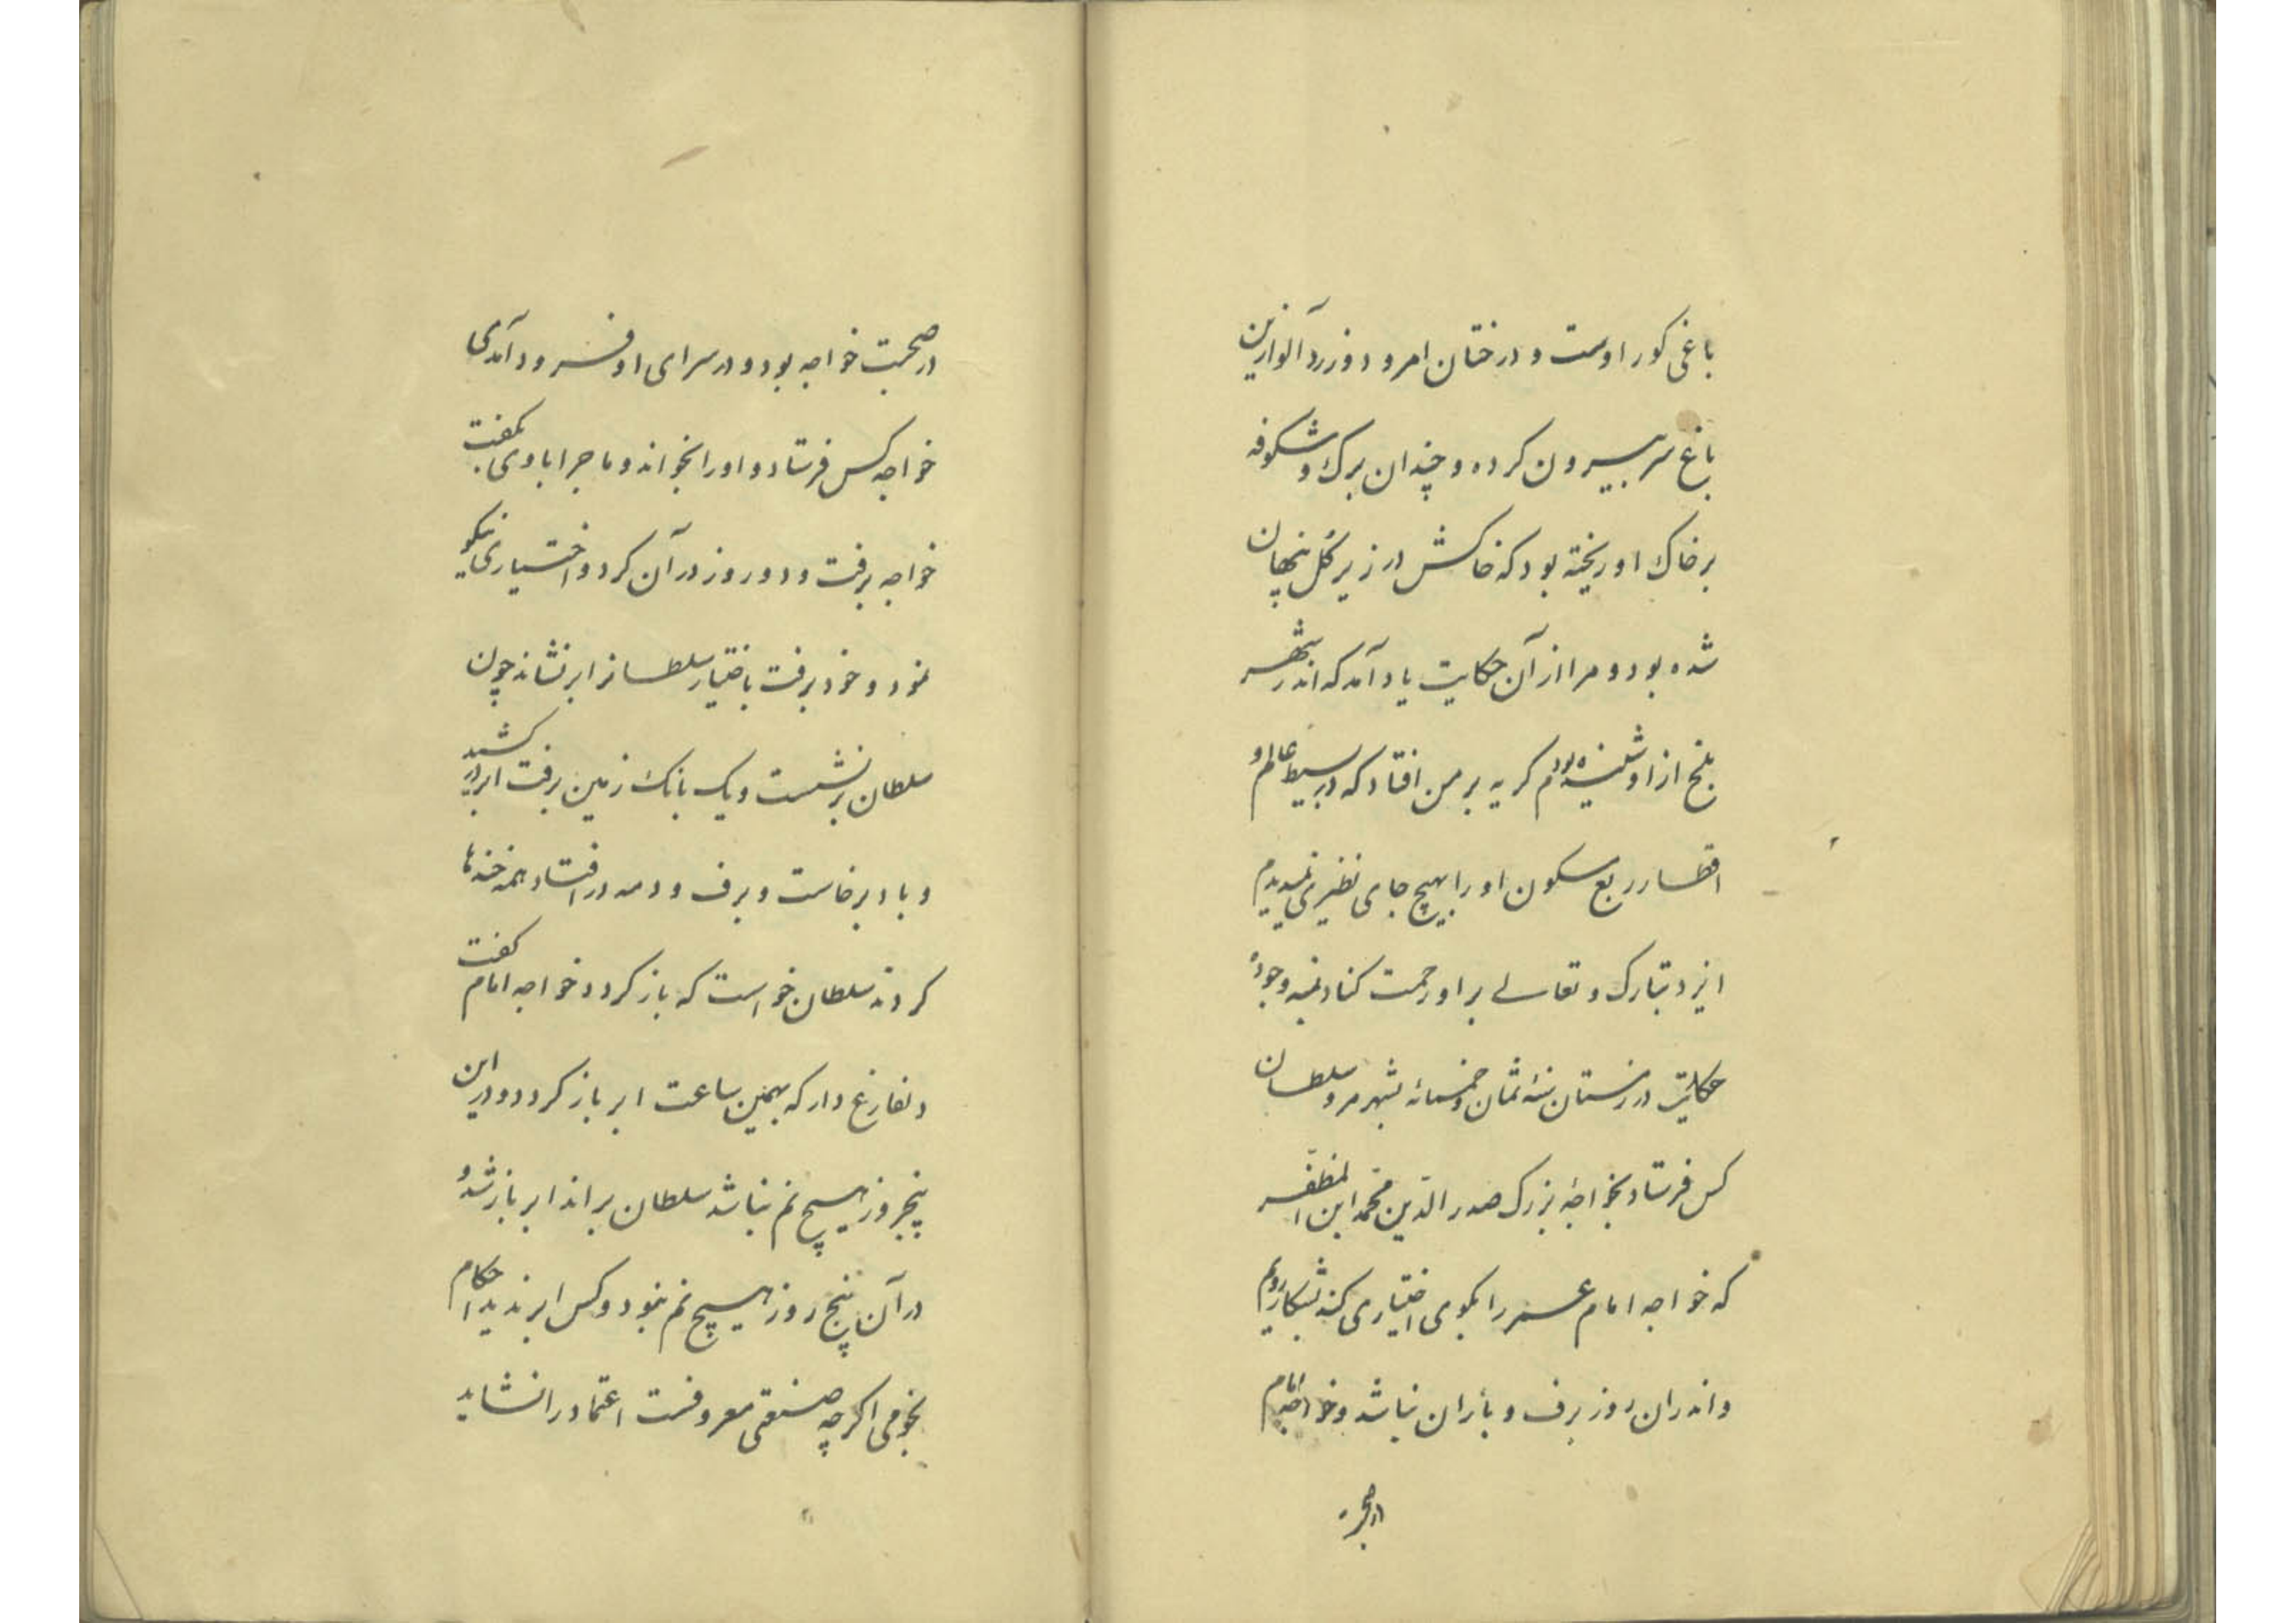 باغی کور اوست و درختان امرود و زردآلو ازین
باغ سر بیرون کرده و چندان برک و شکوفه
بر خاک او ریخته بود که خاکش در زیر گل پنهان
شده بود و مرا از آن حکایت یاد آمد که اندر شهر
بلخ از او شنیده بودم کریه بر من افتاد که در بسیط عالم و
اقطار ربع سکون او را بهیچ جای نظیری نمیدیدم
ایزد تبارک و تعالی بر او رحمت کناد بمنه وجوده
حکایت در زمستان سنهٔ ثمان وخمسمائه بشهر مرو سلطان
کس فرستاد بخواجهٔ بزرک صدر الدّین محمّد ابن المظفّر
که خواجه امام عمر را بکوی اختیاری کند بشکار رویم
و اندران روز برف و باران نباشد و خواجه امام
در صحبت
در صحبت خواجه بود و در سرای او فرود آمدی
خواجه کس فرستاد و او را بخواند و ماجرا با وی بکفت
خواجه برفت و دو روز در آن کرد و اختیاری نیکو
نمود و خود برفت باختیار سلطانرا برنشاند چون
سلطان برنشست و یک بانک زمین برفت ابر در کشید
و باد برخاست و برف و دمه در افتاد همه خنده‌ها
کردند سلطان خواست که باز کردد خواجه امام کفت
دلفارغ دار که بهمین ساعت ابر باز کردد و در این
پنجروز هیچ نم نباشد سلطان براند ابر باز شد و
در آن پنج روز هیچ نم نبود و کس ابر ندید احکام
نجومی اکرچه صنعتی معروفست اعتماد را نشاید